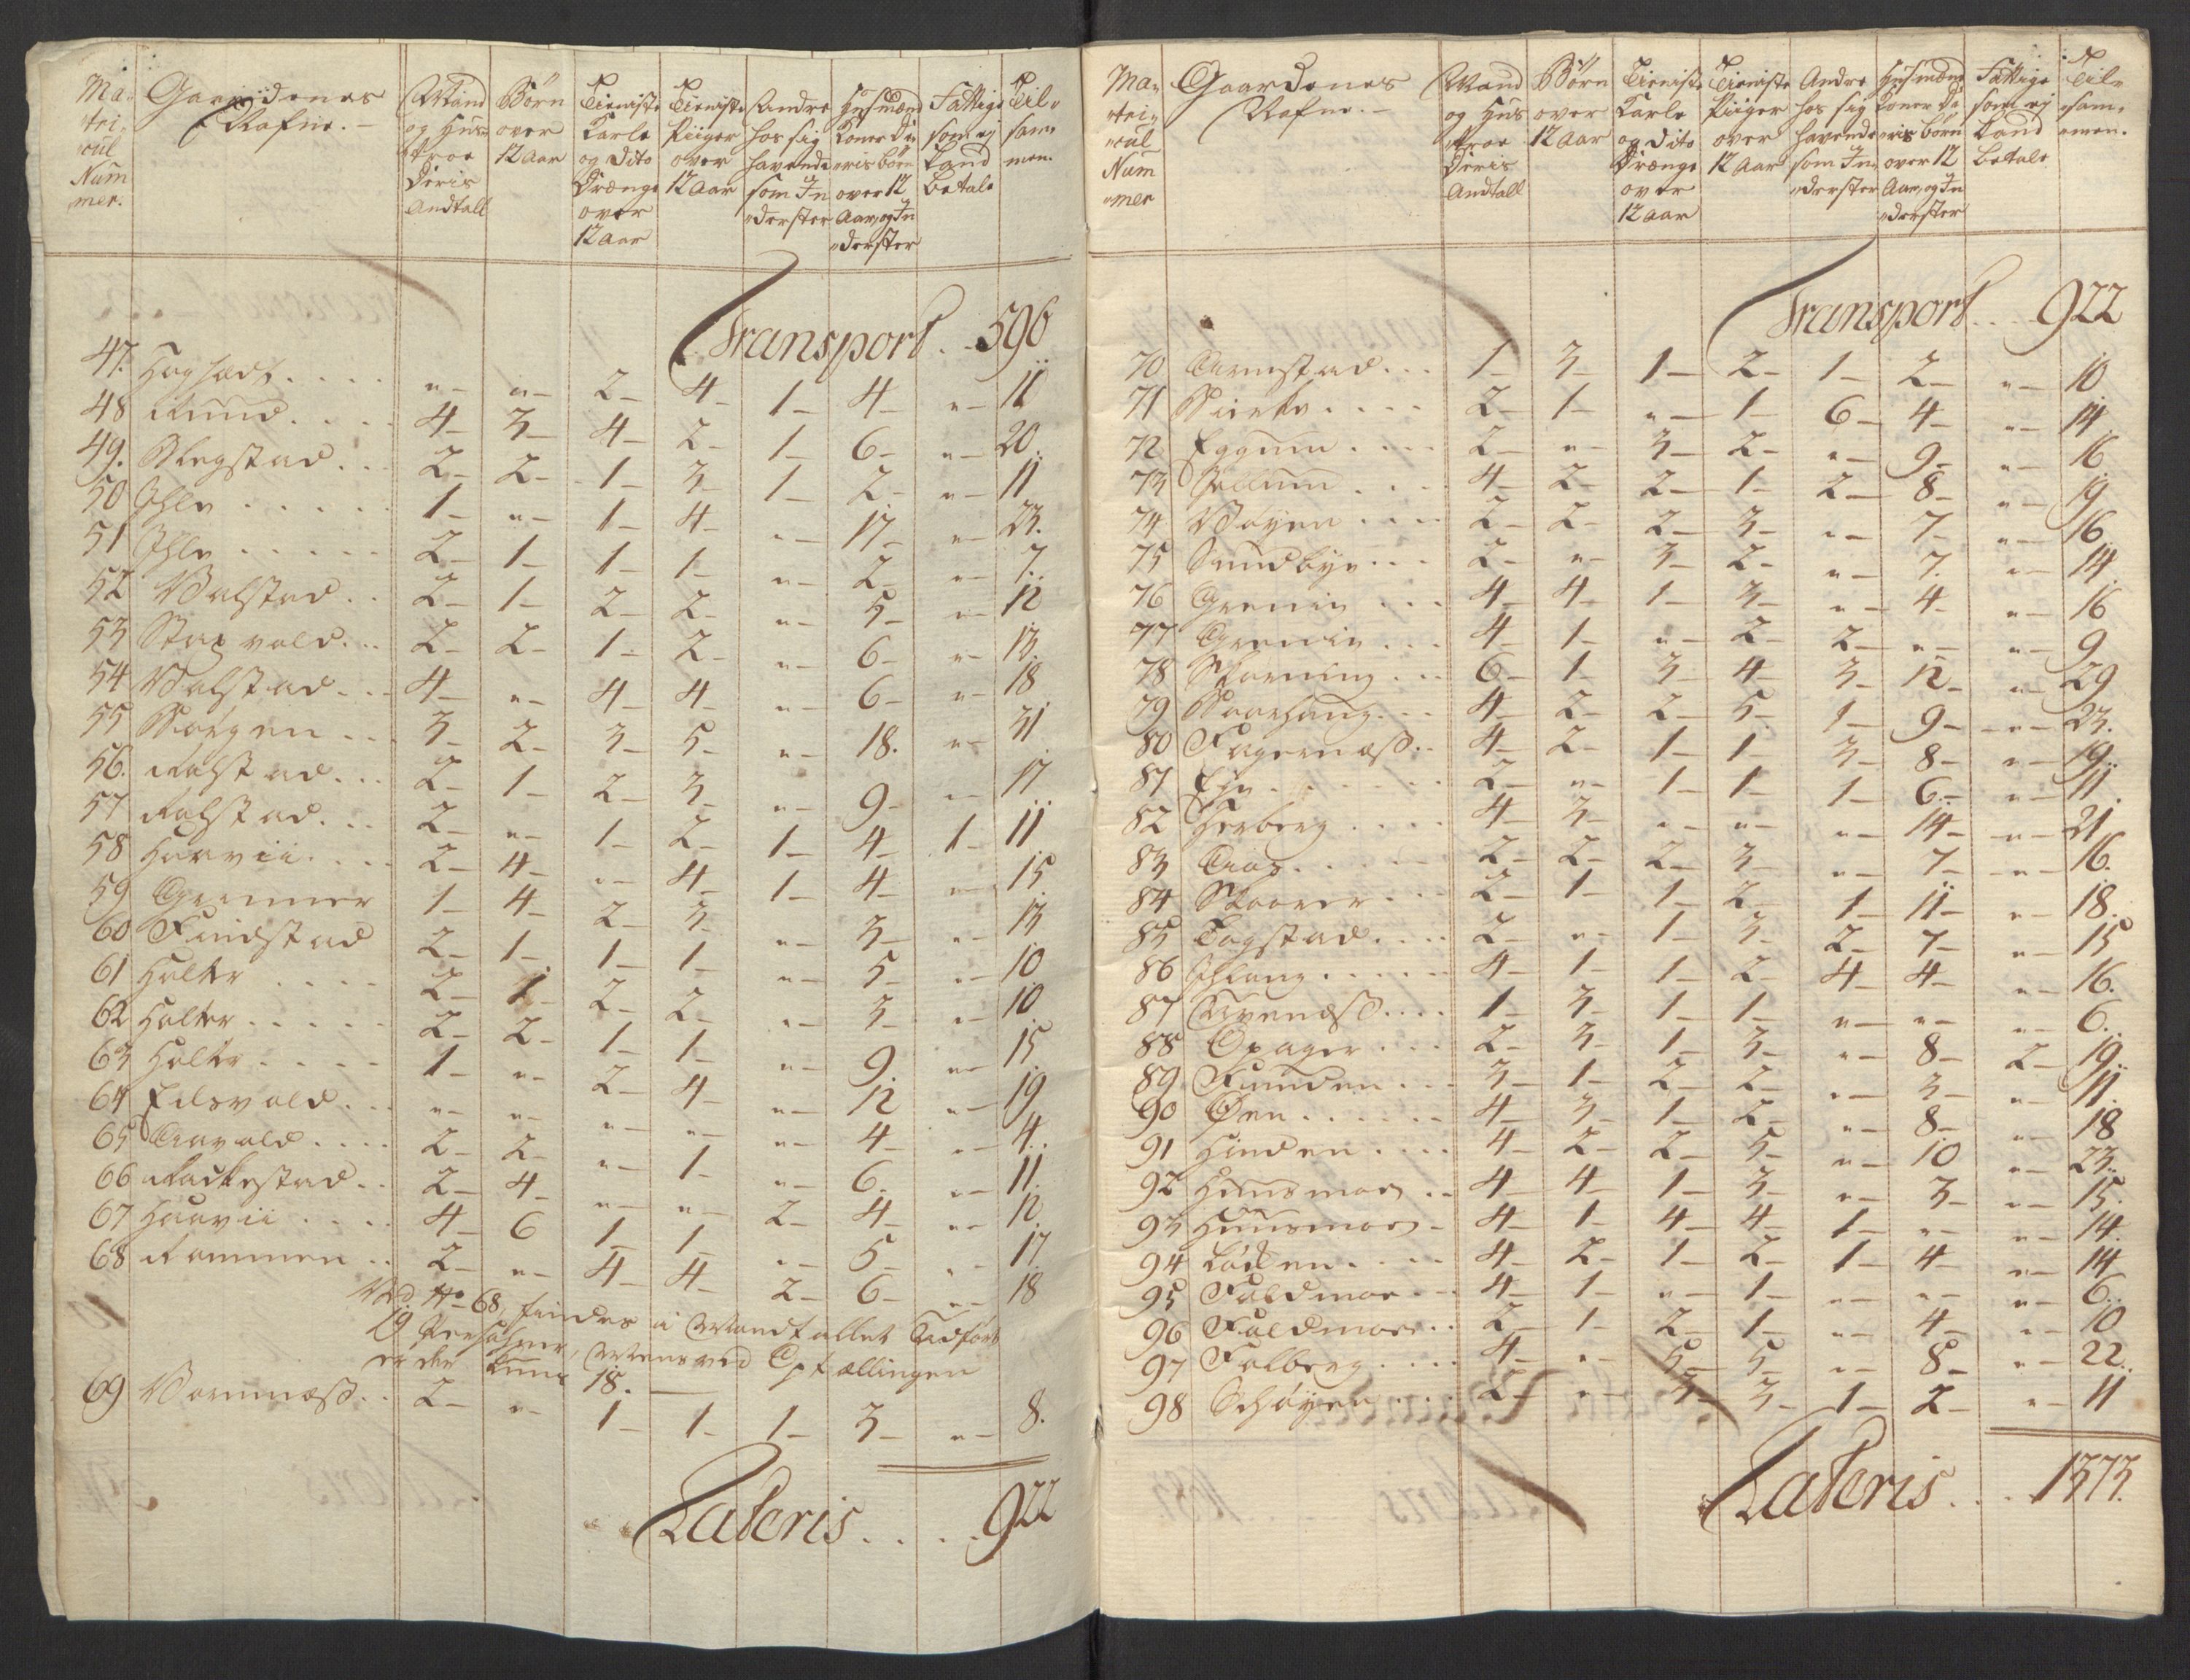 Ma- Gaardenes Mand Børn Tieniste Tieniste Andre Huusmænd Fattige Til-
tri- Nafne.- og Hus- over Karle Piiger hos sig Koner De- som ej sam-
cul troe 12 Aar og dito over havende ris børn Kand men.
Num Deris Drænge 12 Aar som In- over 12 betale
mer. Andtall over derster Aar, og In-
12 Aar derster
Transport . . 596
47. „- „- 2- 4- 1- 4- „- 11
48 Ruud . . . . 4- 3- 4- 2- 1- 6- „- 20.
49. Blegstad . . . 2- 2- 1- 3- 1- 2- „- 11
50 Ihle . . . . . 1- „- 1- 4- „- 17- „- 23.
51 Ihle . . . . . 2- 1- 1- 1- „- 2- „- 7.
52 Valstad . . 2- 1- 2- 2- „- 5- „- 12
53 2- 2- 1- 2- „- 6- „- 13.
54 Valstad . . . 4- „- 4- 4- „- 6- „- 18
55 3- 2- 3- 5- „- 18. „- 31
56. Ralstad . . . 2- 1- 2- 3- „- 9- „- 17
57 Ralstad . . . 2- „- 1- 2- 1- 4- 1- 11
58 Haavii . . . . 2- 4- „- 4- 1- 4- „- 15
59 Grinner 1- 4- 2- 3- „- 3- „- 13
60 Findstad 2- 1- 1- 1- „- 5- „- 10
61 Holter . . . . 2- 1- 2- 2- „- 3- „- 10.
62 Holter . . . . . 2- 2- 1- 1- „- 9- „- 15
63 Holter . . . . 1- „- 2- 4- „- 12 „- 19
64 Eilsvold . . . „- „- „- „- „- 4- „- 4.
65 Aavald . . . . 2- 2- „- 1- „- 6- „- 11.
66 Rackestad . . 2- 4- „- „- 2- 4- „- 12
67 Haavii . . . . 4- 6 1- 1- „- 5- „- 17.
68 Rommen . . 2- „- 4- 4- 2- 6- „- 18
Ved No 68, findes i Mandtallet Anført
19 Persohner, Mens ved Optællingen
er der kuns 18. —
69 Vormnæss . . 2- „- 1- 1- 1- 3- „- 8.
Lateris . . . . 922
Ma- Gaardenes Mand Børn Tieniste Tieniste Andre Husmænd Fattige Til-
tri- Nafne.- og Hus over Karle Piiger hos sig Koner De- som ej sam-
cul troe 12 Aar og dito over havende ris børn Kand men.
Num Deris Drænge 12 Aar som In- over 12 betale
mer Andtall over derster Aar, og In-
12 Aar derster
Transport . . . 922
70 Aarnestad . . . 1- 3- 1- 2- 1- 2- „- 10
71 2- 1- „- 1- 6- 4- „- 14.
72 Eggum . . . . 2- „- 3- 2- „- 9- „- 16
73 Sellum . . . . 4- 2- 2- 1- 2- 8- „- 19
74 Vøyen . . . . 2- 2- 2- 3- „- 7- „- 16
75 Sundbye . . . 2- „- 3- 2- „- 7. „- 14
76 Grenie . . . 4- 4- 1- 3- „- 4- „- 16
77 Grenie . . . 4- 1- „- 2- 2- „- „- 9
78 Skorning . . . 6- 1- 3- 4- 3- 12- „- 29
79 Kaarhaug . . . 4- 2- 2- 5- 1- 9- „- 23.
80 Fagernæss . . 4- 2- 1- 1- 3- 8- „- 19.
81 2- „- 1- 1- 1- 6- „- 11.
82 Herberg . . . . 4- 3- „- „- „- 14- „- 21
83 Aas . . . . . 2- 2- 2- 3- „- 7- „- 16.
84 Skaarer . . . 2- 1- 1- 2- 1- 11- „- 18.
85 Togstad . . . . 2- „- 1- 3- 2- 7- „- 15
86 Ihlang . . . . . 4- 1- 1- 2- 4- 4- „- 16.
87 1- 3- 1- 1- „- „- „- 6.
88 Opager . . . . 2- 3- 1- 3- „- 8- 2- 19.
89 Funden . . . 3- 1- 2- 2- „- 3- „- 11.
90 Øen . . . . . . 4- 3- 1- 2- „- 8- „- 18
91 Hinden . . . . 4- 2- 2- 5- „- 10 „- 23.
92 Huusmoe . . 4- 4- 1- 3- „- 3- „- 15.
93 Huusmoe - 4- 1- 4- 4- 1- „- „- 14.
94 Løcken . . . . 4- 2- 1- 2- 1- 4- „- 14
95 Foldmoe . . . 4- 1- „- 1- „- „- „- 6.
96 Foldmoe . . 2- 1- 2- 1- „- 4- „- 10
97 Folberg . . . . 4- „- 5- 5- „- 8- „- 22.
98 Schøyen . . . . 2- „- 3- 3- 1- 2- „- 11
Lateris . . . . 1373.